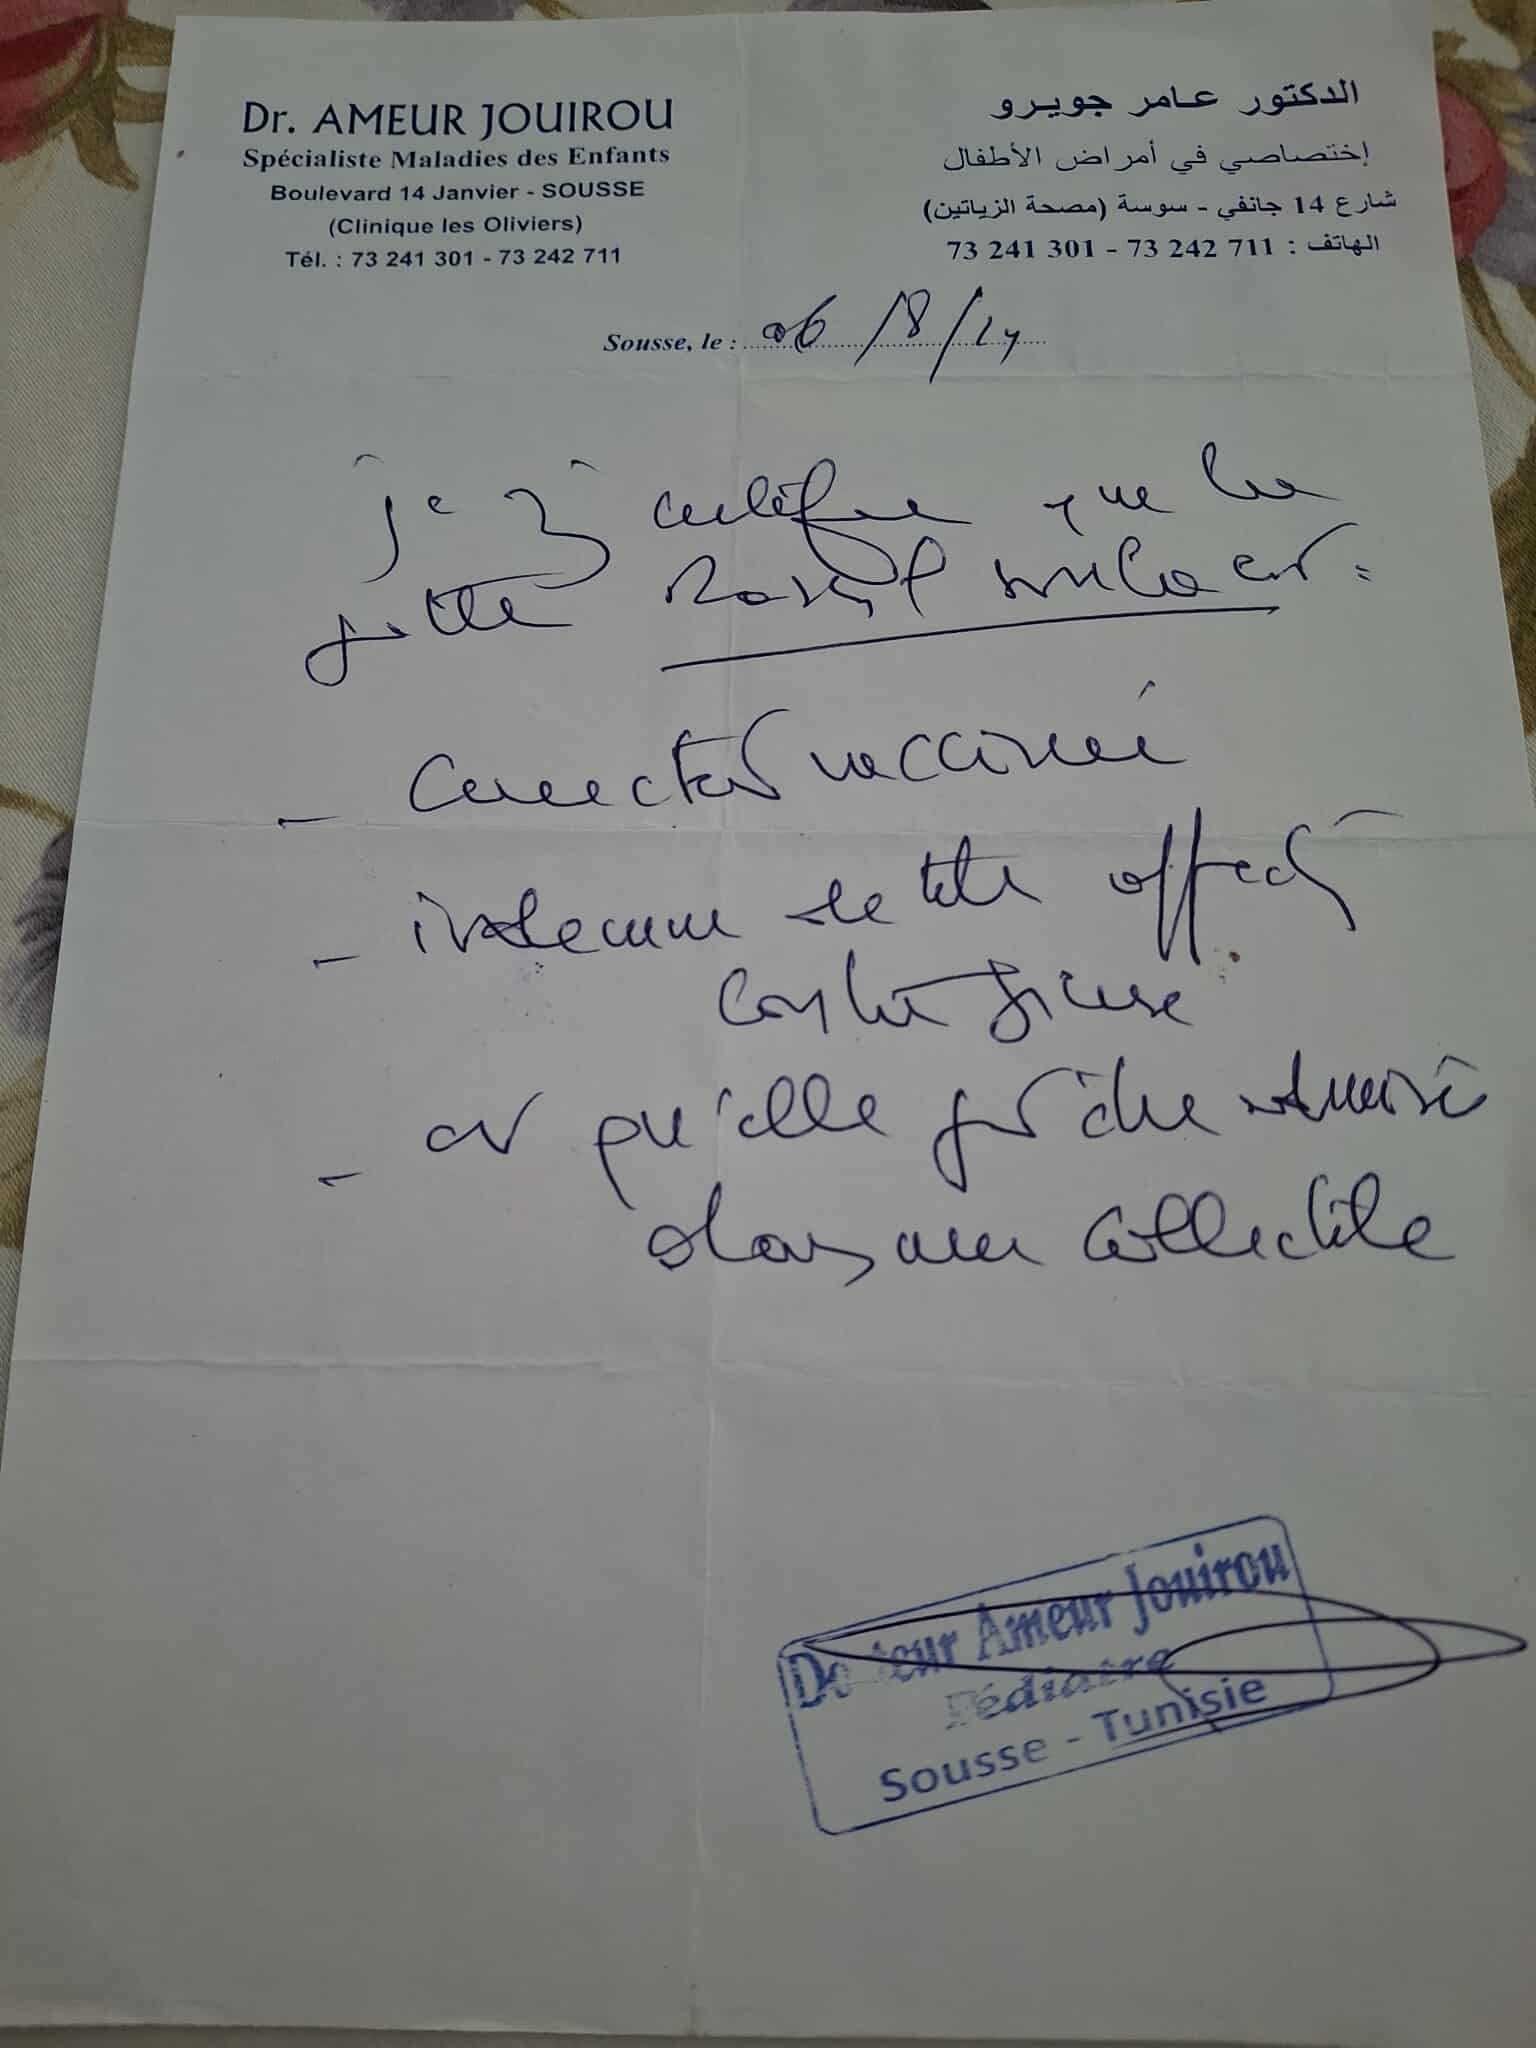 Dr. AMEUR JOUIROU
Spécialiste Maladies des Enfants
Boulevard 14 Janvier - SOUSSE
(Clinique les Oliviers)
Tél. : 73 241 301 - 73 242 711
الدكتور عامر جويرو
إختصاصي في أمراض الأطفال
شارع 14 جانفي - سوسة (مصحة الزياتين)
الهاتف : 73 241 301 - 73 242 711
Sousse, le : 06/8/24
Je certifie que la
est :
- correct vaccinée
- indemne de tte affect°
contagieuse
- et qu'elle peut être admise
dans une collectivité
Docteur Ameur Jouirou
Pédiatre
Sousse - Tunisie